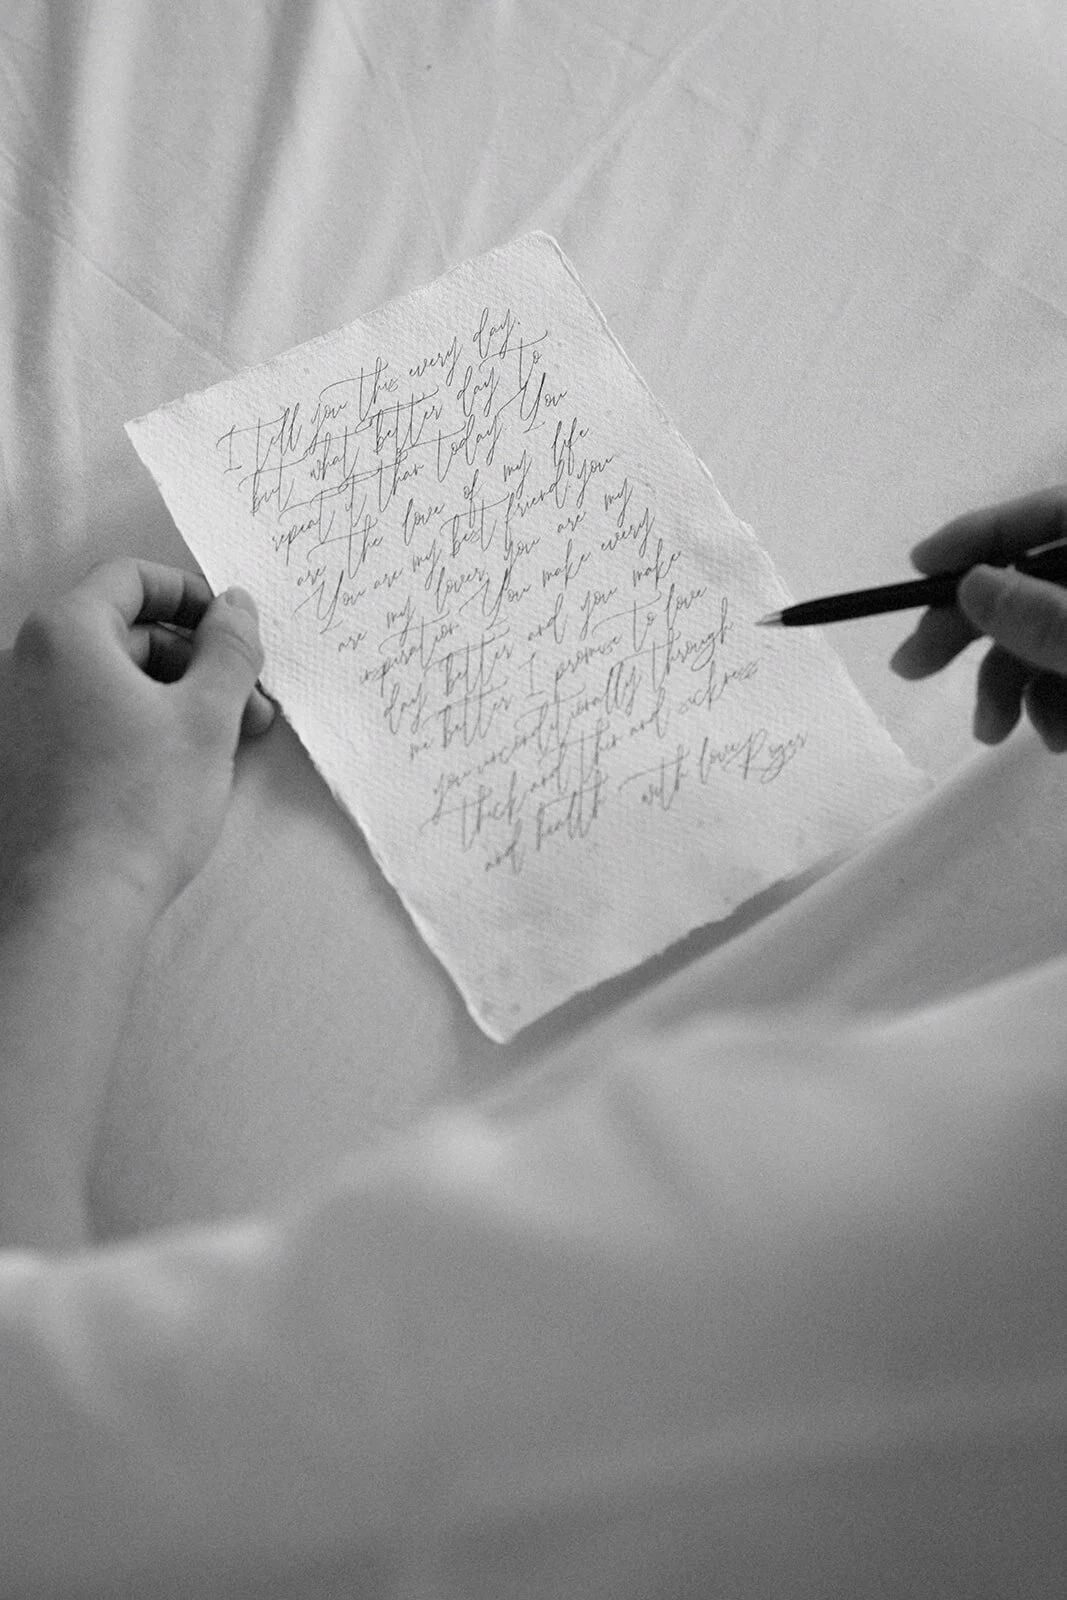 I tell you this every day.
but what better day to
repeat it than today. You
are the love of my life
You are my best friend. you
are my lover, you are my
inspiration. You make every
day better and you make
me better. I promise to love
you uncenditionally through
thick and thin and sickness
and health with love Roger